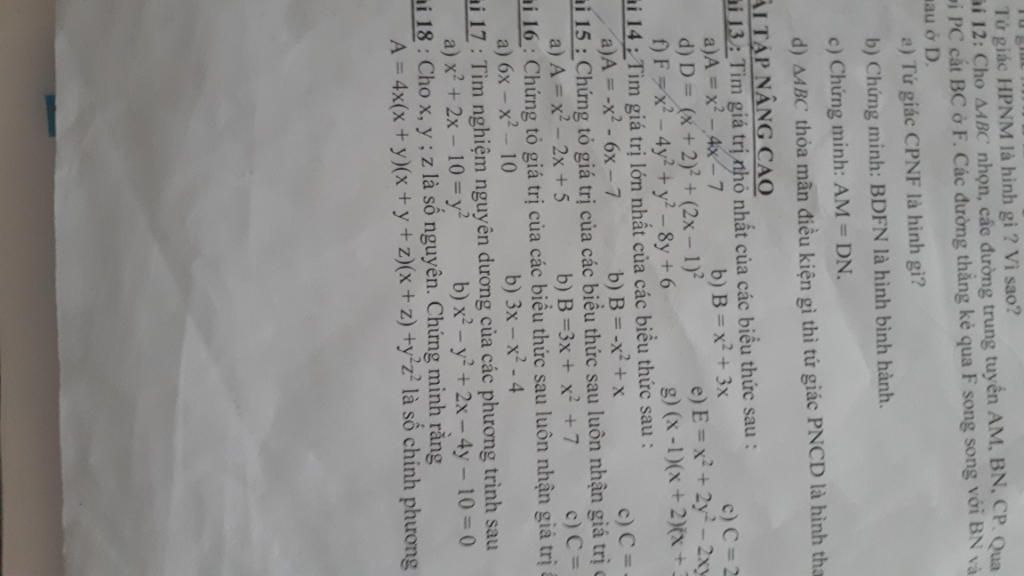 Tứ giác HPNM là hình gì ? Vì sao?
ài 12: Cho ΔABC nhọn, các đường trung tuyến AM, BN, CP. Qua
PC cắt BC ở F. Các đường thẳng kẻ qua F song song với BN và
hau ở D.
a) Tứ giác CPNF là hình gì?
b) Chứng minh: BDFN là hình bình hành.
c) Chứng minh: AM = DN.
d) ΔABC thỏa mãn điều kiện gì thì tứ giác PNCD là hình tha
ÀI TẬP NÂNG CAO
ài 13: Tìm giá trị nhỏ nhất của các biểu thức sau :
a)A = x² – 4x – 7 b) B = x² + 3x c) C = 2
d) D = (x + 2)² + (2x – 1)² e) E = x² + 2y² – 2xy
f) F = x² – 4y² + y² – 8y + 6 g) (x -1)(x + 2)(x +
ài 14 : Tìm giá trị lớn nhất của các biểu thức sau :
a)A = -x² - 6x – 7 b) B = -x² + x c) C =
ài 15 : Chứng tỏ giá trị của các biểu thức sau luôn nhận giá trị
a) A = x² – 2x + 5 b) B =3x + x² + 7 c) C =
ài 16 : Chứng tỏ giá trị của các biểu thức sau luôn nhận giá trị
a) 6x – x² – 10 b) 3x – x² - 4
ài 17 : Tìm nghiệm nguyên dương của các phương trình sau
a) x² + 2x – 10 = y² b) x² – y² + 2x – 4y – 10 = 0
ài 18 : Cho x, y ; z là số nguyên. Chứng minh rằng
A = 4x(x + y)(x + y + z)(x + z) +y²z² là số chính phương